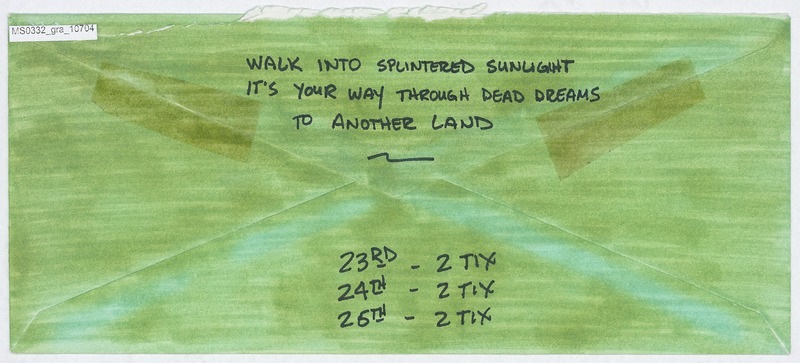 MS0332_gra_10704
WALK INTO SPLINTERED SUNLIGHT
IT'S YOUR WAY THROUGH DEAD DREAMS
TO ANOTHER LAND
23RD - 2 TIX
24TH - 2 TIX
26TH - 2 TIX